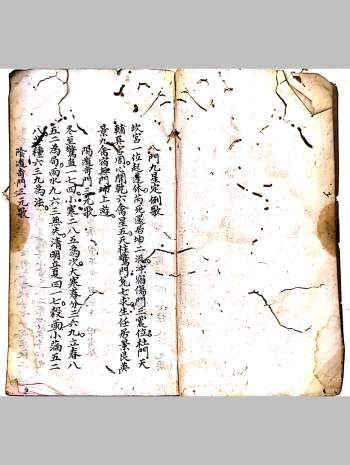 八門九星定例歌
坎宮一位起蓬休芮死還居坤二流冲宿傷門三震位杜門天
輔巽宮周心開乾六禽星五天柱驚門兌七求生任居景艮萬
景九離宿無門坤上遊
陽遁奇門三元歌
冬至驚直一七四小寒二八五為次大寒春分三六九立春八
五二為苟雨水九六三無失清明立夏四一七穀雨小滿五二
八芒種六三九為法
陰遁奇門三元歌